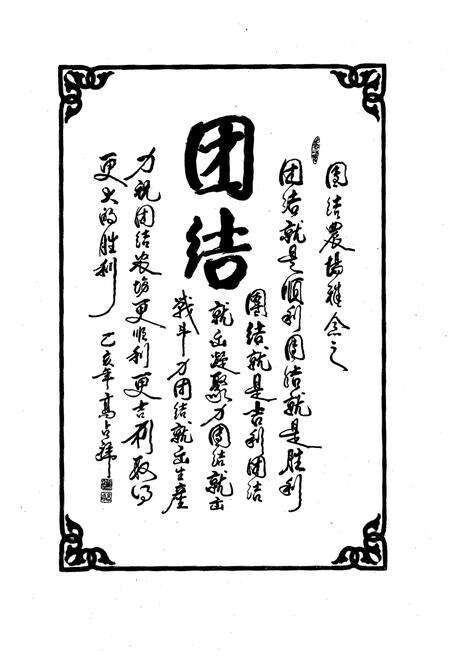 团结
圆结農場雅念之
团结就是顺利团结就是胜利
團结就是吉利团结
就出凝聚力团结就出
战斗力团结就出生産
力祝团结农场更顺利更吉利取得
更大的胜利
乙亥年高占祥